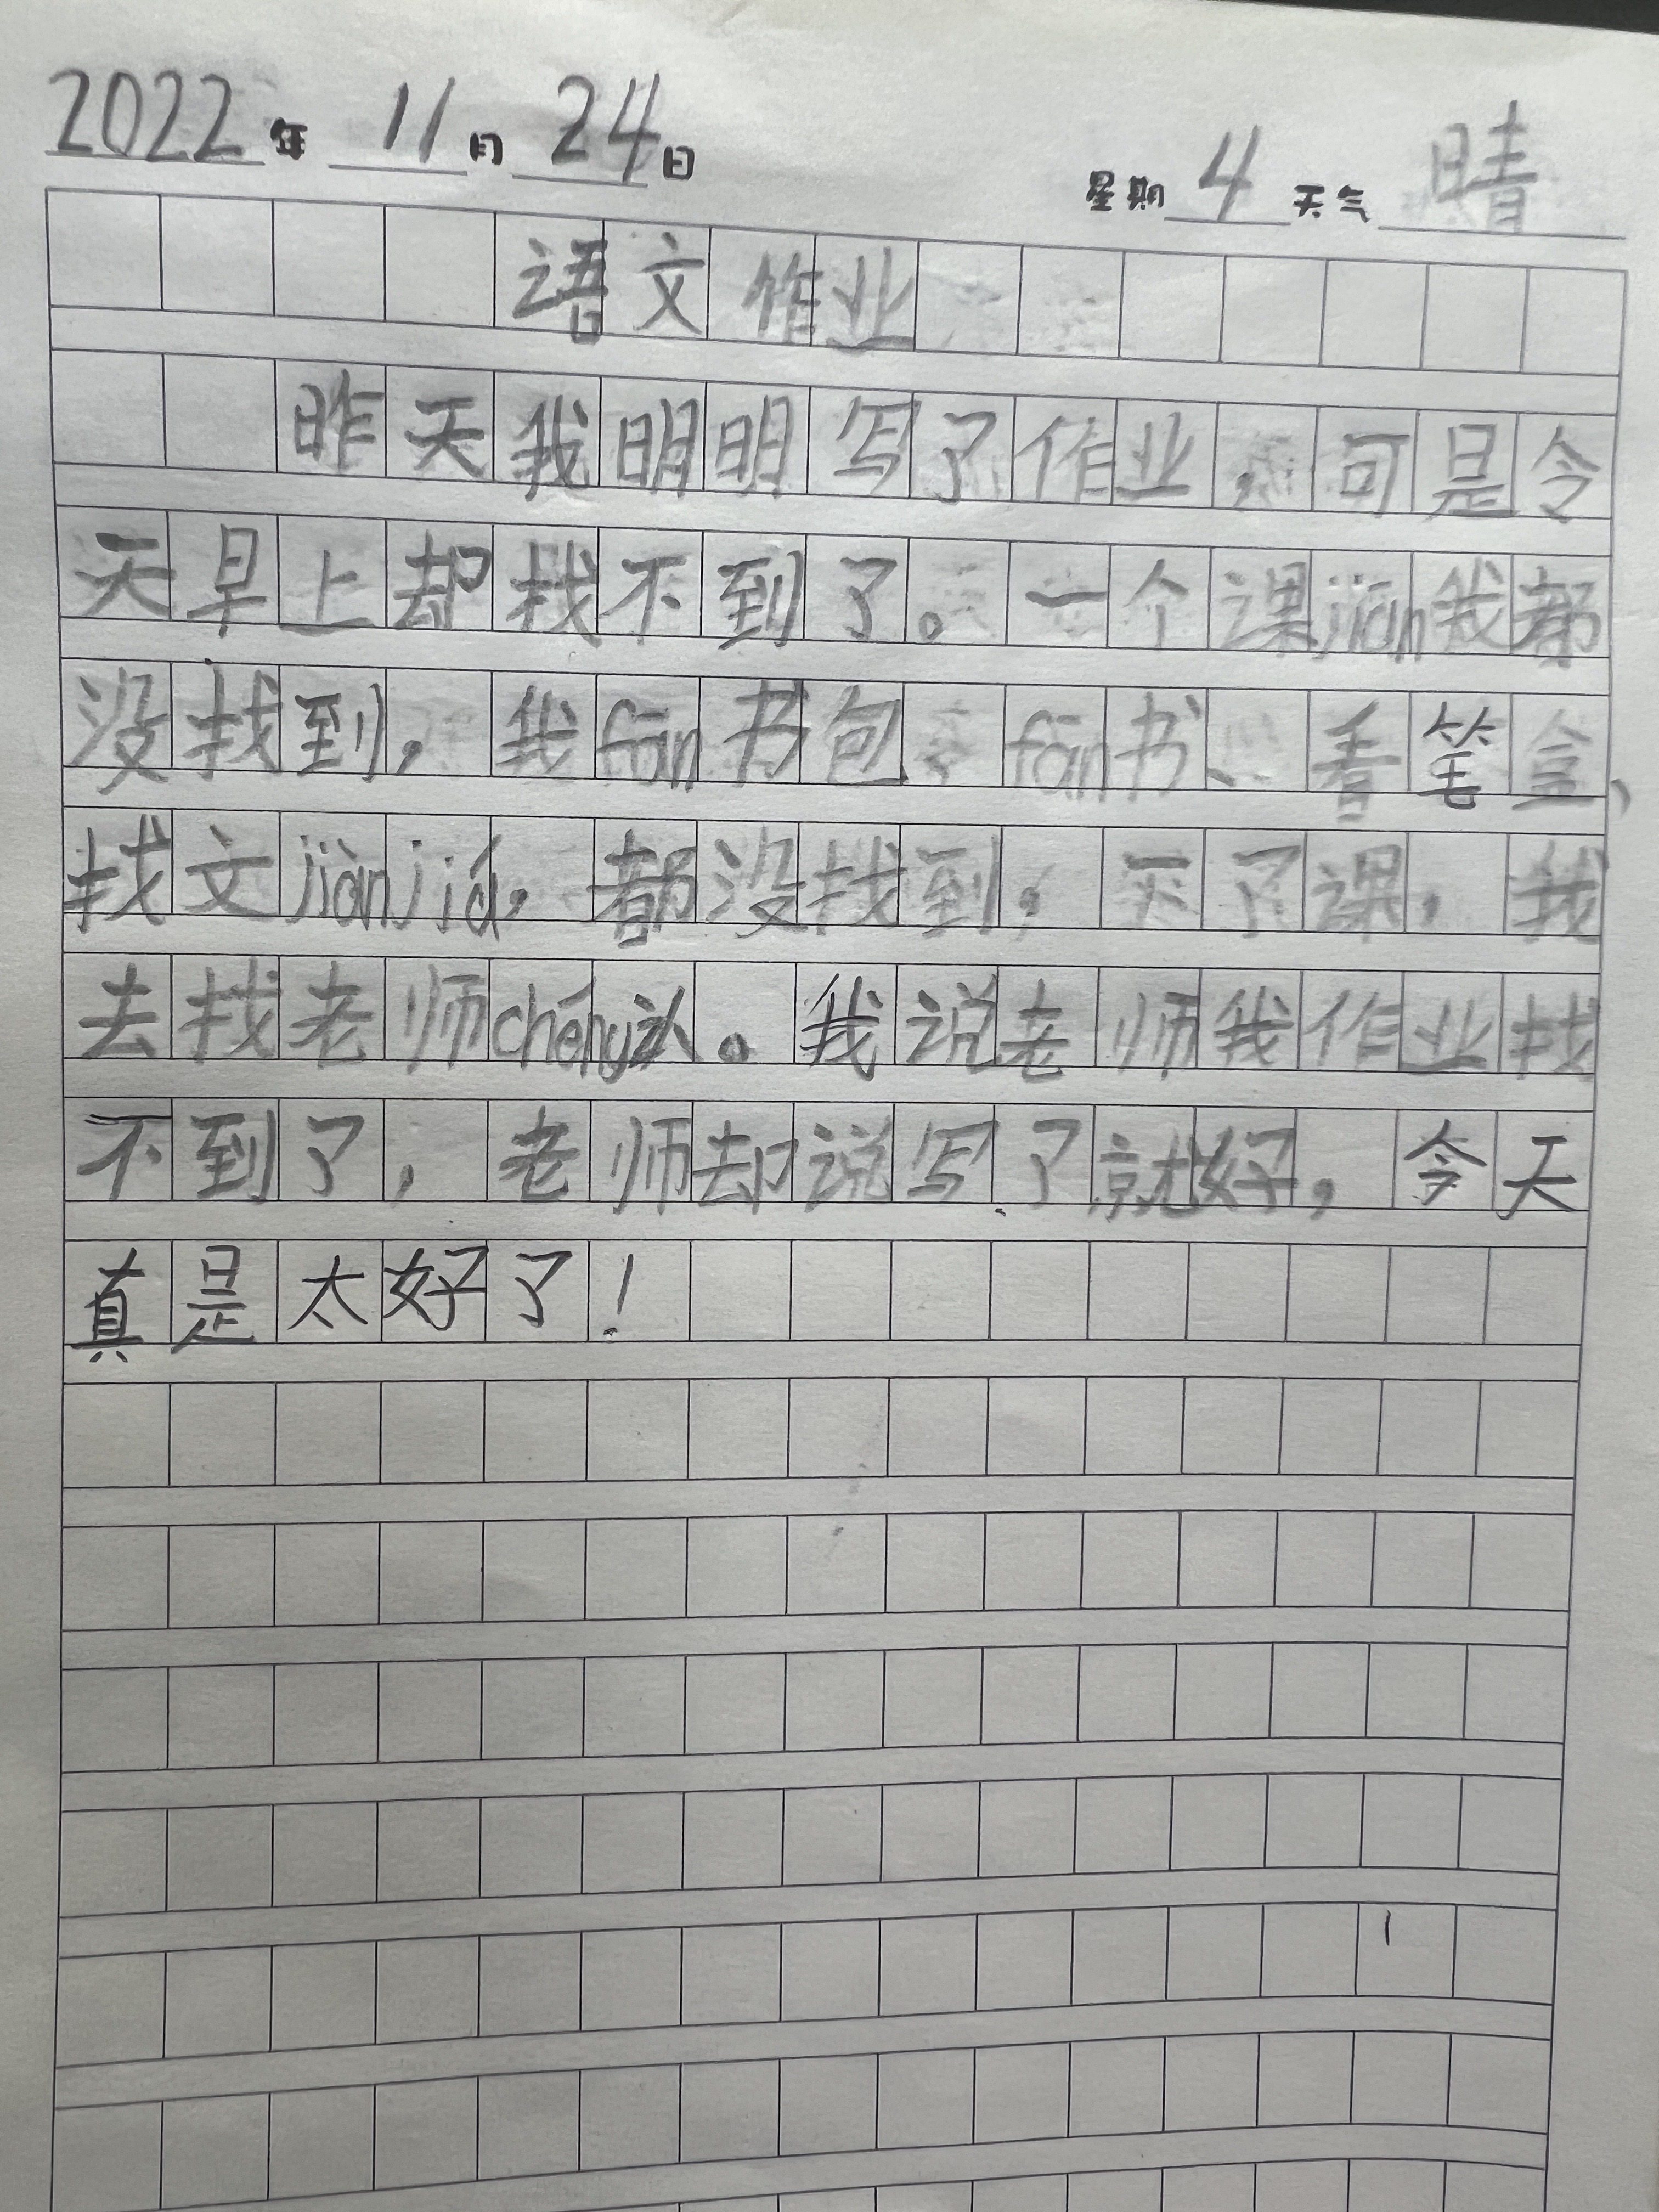 2022年 11月 24日 星期 4 天气 晴
语文作业
昨天我明明写了作业，可是今
天早上却找不到了。一个课jiān我都
没找到，我fān书包、fān书、看笔盒、
找文jiànjiā，都没找到，下了课，我
去找老师chéng认。我说老师我作业找
不到了，老师却说写了就好，今天
真是太好了！